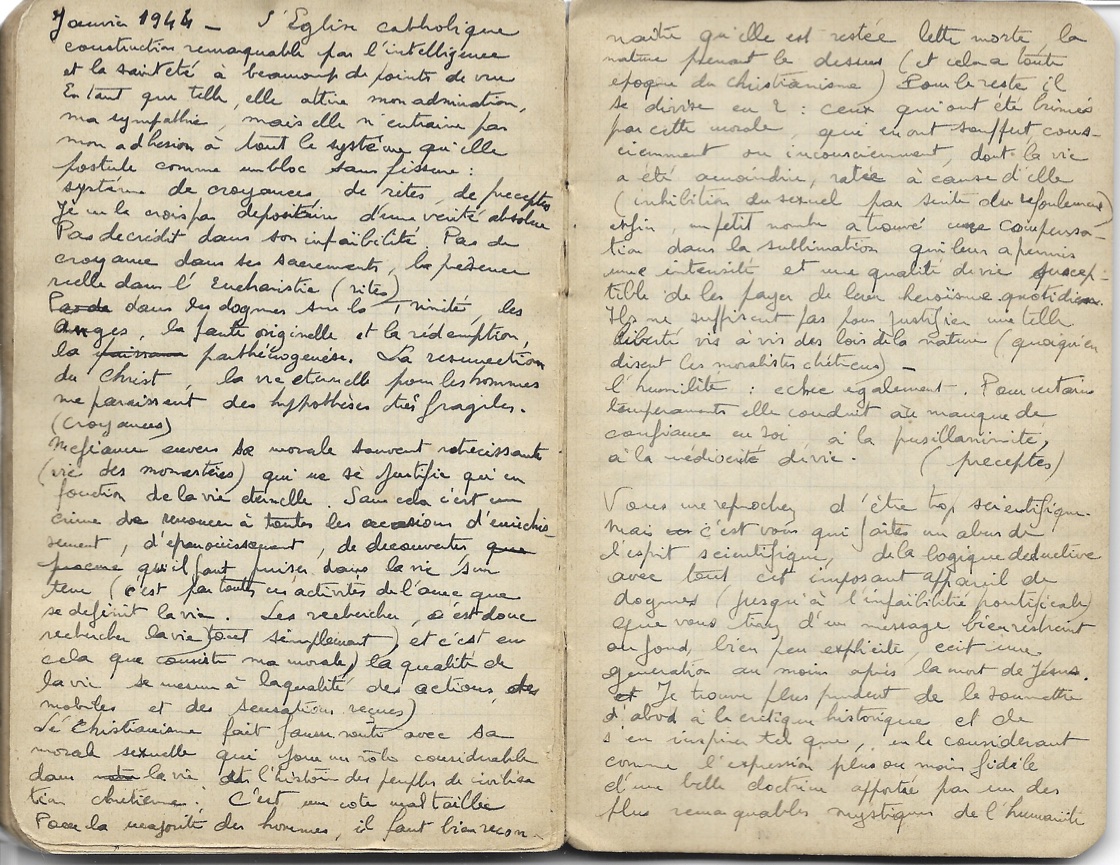 Janvier 1944 - L'Eglise catholique
construction remarquable par l'intelligence
et la sainteté à beaucoup de points de vue
En tant que telle, elle attire mon admiration,
ma sympathie, mais elle n'entraine pas
mon adhésion à tout le système qu'elle
postule comme un bloc sans fissure :
système de croyances, de rites, de preceptes
Je ne la crois pas depositaire d'une verité absolue
Pas de crédit dans son infaïbilité. Pas de
croyance dans ses sacrements, la présence
reelle dans l'Eucharistie (rites)
Pas de dans les dogmes sur la Trinité, les
Anges, la faute originelle et la rédemption,
la parthénogenèse. La resurrection
du Christ, la vie eternelle pour les hommes
me paraissent des hypothèses très fragiles.
(croyances)
Mefiance envers sa morale souvent retrecissante
(vie des monastères) qui ne se justifie qu'en
fonction de la vie eternelle. Sans cela c'est un
crime de renoncer à toutes les occasions d'enrichis-
sement, d'épanouissement, de decouvertes que
qu'il faut puiser dans la vie sur
terre (c'est par toutes ces activités de l'ame que
se definit la vie. Les rechercher, c'est donc
rechercher la vie tout simplement) et c'est en
cela que consiste ma morale, la qualité de
la vie se mesure à la qualité des actions, des
mobiles et des sensations reçues)
Le Christianisme fait fausse route avec sa
morale sexuelle qui joue un rôle considérable
dans la vie et l'histoire des peuples de civilisa
tion chrétienne : C'est une cote mal taillée
Pour la majorité des hommes, il faut bien recon-
naitre qu'elle est restée lettre morte la
nature prenant le dessus (et cela a toute
epoque du christianisme) Pour le reste il
se divise en 2 : ceux qui ont été brimés
par cette morale, qui en ont souffert cons-
ciemment ou inconsciemment, dont la vie
a été amoindrie, ratée à cause d'elle
(inhibition du sexuel par suite du refoulement)
enfin, un petit nombre a trouvé une compensa-
tion dans la sublimation qui leur a permis
une intensité et une qualité de vie suscep-
tible de les payer de leur heroïsme quotidien.
Ils ne suffisent pas pour justifier une telle
liberté vis à vis des lois de la nature (quoiqu'en
disent les moralistes chrétiens) -
l'humilité : echec également. Pour certains
temperaments elle conduit au manque de
confiance en soi, à la pusillanimité,
à la médiocrité de vie. (preceptes)
Vous me reprochez d'être trop scientifique.
Mais c'est vous qui faites un abus de
l'esprit scientifique, de la logique deductive
avec tout cet imposant appareil de
dogmes (jusqu'à l'infaïbilité pontificale)
que vous tirez d'un message bien restreint
au fond, bien peu explicite, ecrit une
generation au moins après la mort de Jésus.
et Je trouve plus prudent de le soumettre
d'abord à la critique historique et de
s'en inspirer tel que, en le considerant
comme l'expression plus ou moins fidèle
d'une belle doctrine apportée par un des
plus remarquables mystiques de l'humanité